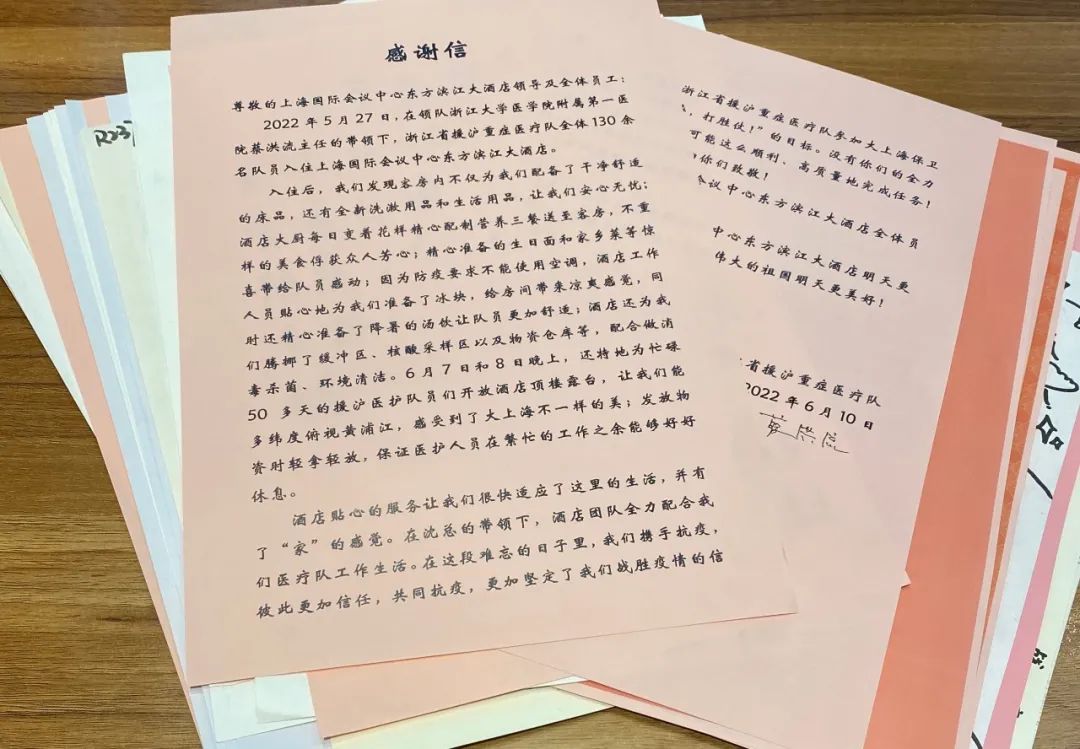 感谢信
尊敬的上海国际会议中心东方滨江大酒店领导及全体员工：
2022年5月27日，在领队浙江大学医学院附属第一医
院蔡洪流主任的带领下，浙江省援沪重症医疗队全体130余
名队员入住上海国际会议中心东方滨江大酒店。
入住后，我们发现客房内不仅为我们配备了干净舒适
的床品，还有全新洗漱用品和生活用品，让我们安心无忧；
酒店大厨每日变着花样精心配制营养三餐送至客房，不重
样的美食俘获众人芳心；精心准备的生日面和家乡菜等惊
喜带给队员感动；因为防疫要求不能使用空调，酒店工作
人员贴心地为我们准备了冰块，给房间带来凉爽感觉，同
时还精心准备了降暑的汤饮让队员更加舒适；酒店还为我
们腾挪了缓冲区、核酸采样区以及物资仓库等，配合做消
毒杀菌、环境清洁。6月7日和8日晚上，还特地为忙碌
50 多天的援沪医护队员们开放酒店顶楼露台，让我们能
多纬度俯视黄浦江，感受到了大上海不一样的美；发放物
资时轻拿轻放，保证医护人员在繁忙的工作之余能够好好
休息。
酒店贴心的服务让我们很快适应了这里的生活，并有
了“家”的感觉。在沈总的带领下，酒店团队全力配合我
们医疗队工作生活。在这段难忘的日子里，我们携手抗疫，
彼此更加信任，共同抗疫，更加坚定了我们战胜疫情的信
浙江省援沪重症医疗队参加大上海保卫
，打胜仗！”的目标。没有你们的全力
可能这么顺利、高质量地完成任务！
你们致敬！
议中心东方滨江大酒店全体员
中心东方滨江大酒店明天更
伟大的祖国明天更美好！
省援沪重症医疗队
2022年6月10日
R23